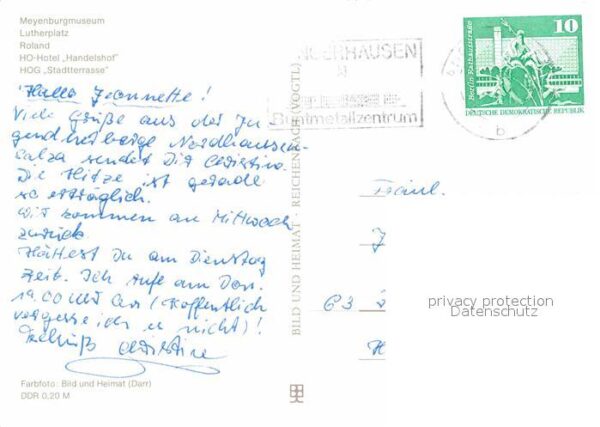 Meyenburgmuseum
Lutherplatz
Roland
HO-Hotel „Handelshof"
HOG „Stadtterrasse"
Hallo Jeannette!
Viele Grüße aus der Ju
gendherberge Nordhausen-
Salza sendet Dir Christine.
Die Hitze ist gerade
so erträglich.
Wir kommen am Mittwoch
zurück.
Hättest Du am Dienstag
Zeit. Ich rufe am Don.
19.00 Uhr an (hoffentlich
vergesse ich es nicht)!
Tschüß Christine
Farbfoto: Bild und Heimat (Darr)
DDR 0,20 M
BILD UND HEIMAT REICHENBACH (VOGTL)
NGERHAUSEN
Buntmetallzentrum
b
10
Berlin, Rathausstraße
DEUTSCHE DEMOKRATISCHE REPUBLIK
Fräul.
J
63
H
privacy protection
Datenschutz